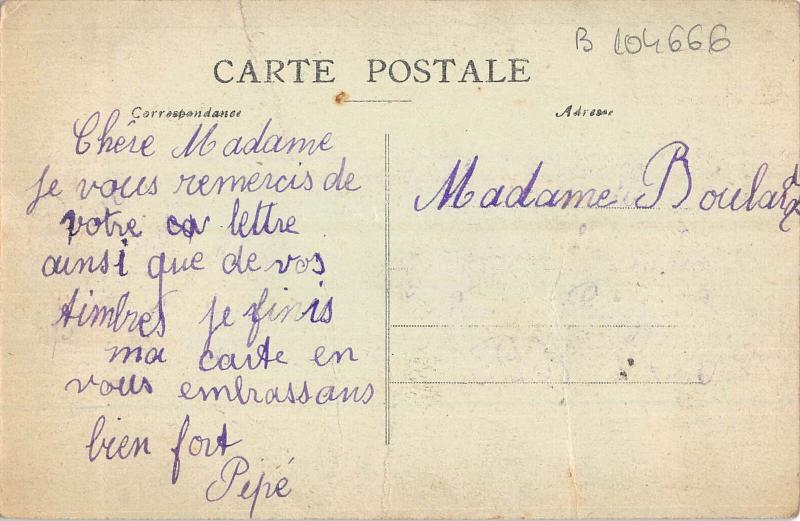 B 104666
CARTE POSTALE
Correspondance
Adresse
Chère Madame
je vous remercis de
votre lettre
ainsi que de vos
timbres je finis
ma carte en
vous embrassans
bien fort
Pépé
Madame